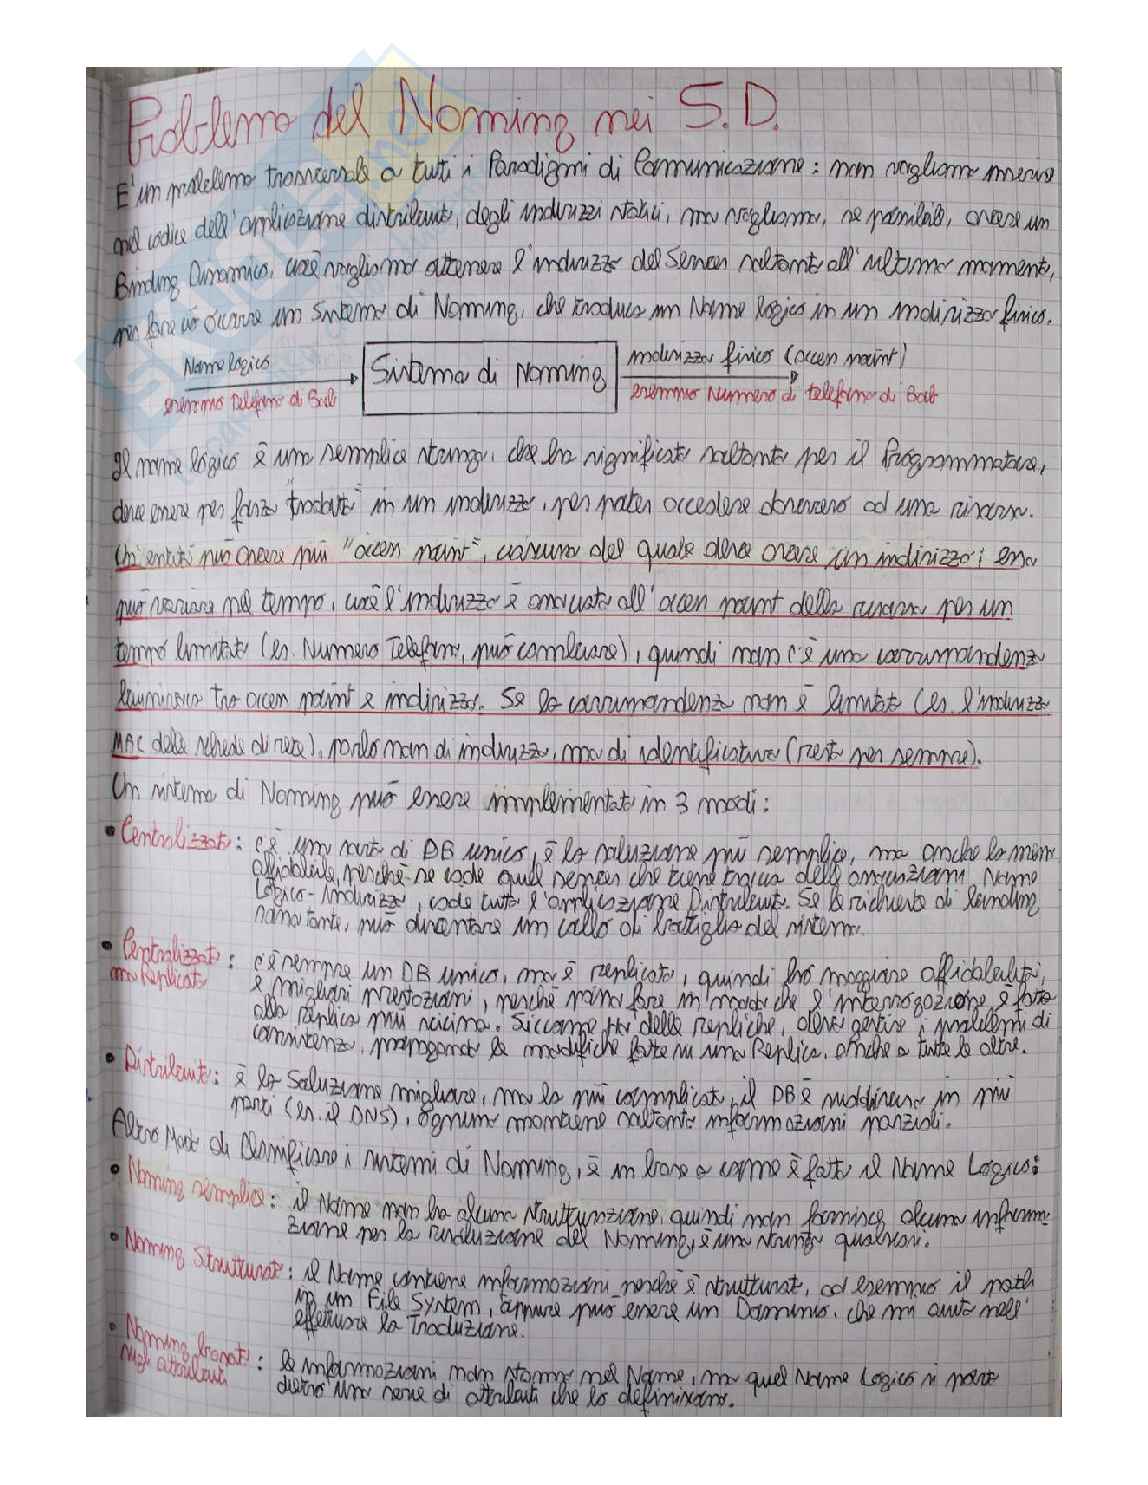 Problema del Naming nei S.D.
E' un problema trasversale a tutti i Paradigmi di Comunicazione: non vogliamo inserire
nel codice dell'applicazione distribuita, degli indirizzi statici, ma vogliamo, se possibile, avere un
Binding Dinamico, cioè vogliamo ottenere l'indirizzo del Server soltanto all'ultimo momento,
per fare ciò occorre un Sistema di Naming, che traduca un Nome logico in un indirizzo fisico.
Nome logico
esempio Telefono di Bob
Sistema di Naming
indirizzo fisico (access point)
esempio Numero di telefono di Bob
Il nome logico è una semplice stringa, che ha significato soltanto per il Programmatore,
deve essere per forza tradotto in un indirizzo, per poter accedere davvero ad una risorsa.
Un'entità può avere più "access point", ciascuno del quale deve avere un indirizzo; esso
può variare nel tempo, cioè l'indirizzo è associato all'access point della risorsa per un
tempo limitato (es. Numero Telefono, può cambiare), quindi non c'è una corrispondenza
biunivoca tra access point e indirizzo. Se la corrispondenza non è limitata (es. l'indirizzo
MAC delle schede di rete), parlo non di indirizzo, ma di identificatore (resta per sempre).
Un sistema di Naming può essere implementato in 3 modi:
• Centralizzato: c'è una sorta di DB unico, è la soluzione più semplice, ma anche la meno
affidabile, perché se cade quel server che tiene traccia delle associazioni Nome
Logico-Indirizzo, cade tutta l'applicazione Distribuita. Se le richieste di binding
sono tante, può diventare un collo di bottiglia del sistema.
• Centralizzato ma Replicato: c'è sempre un DB unico, ma è replicato, quindi ho maggiore affidabilità,
e migliori prestazioni, perché posso fare in modo che l'interrogazione è fatta
alla replica più vicina. Siccome ho delle repliche, devo gestire i problemi di
consistenza, propagando le modifiche fatte su una Replica, anche a tutte le altre.
• Distribuito: è la Soluzione migliore, ma la più complicata, il DB è suddiviso in più
parti (es. il DNS), ognuno mantiene soltanto informazioni parziali.
Altro Modo di Classificare i sistemi di Naming, è in base a come è fatto il Nome Logico:
• Naming semplice: il Nome non ha alcuna strutturazione, quindi non fornisce alcuna informa-
zione per la risoluzione del Naming, è una stringa qualsiasi.
• Naming Strutturato: il Nome contiene informazioni perché è strutturato, ad esempio il path
in un File System, oppure può essere un Dominio, che mi aiuta nell'
effettuare la Traduzione.
• Naming basato sugli attributi: le informazioni non stanno nel Nome, ma quel Nome Logico si porta
dietro una serie di attributi che lo definiscono.
SKUOLA.net